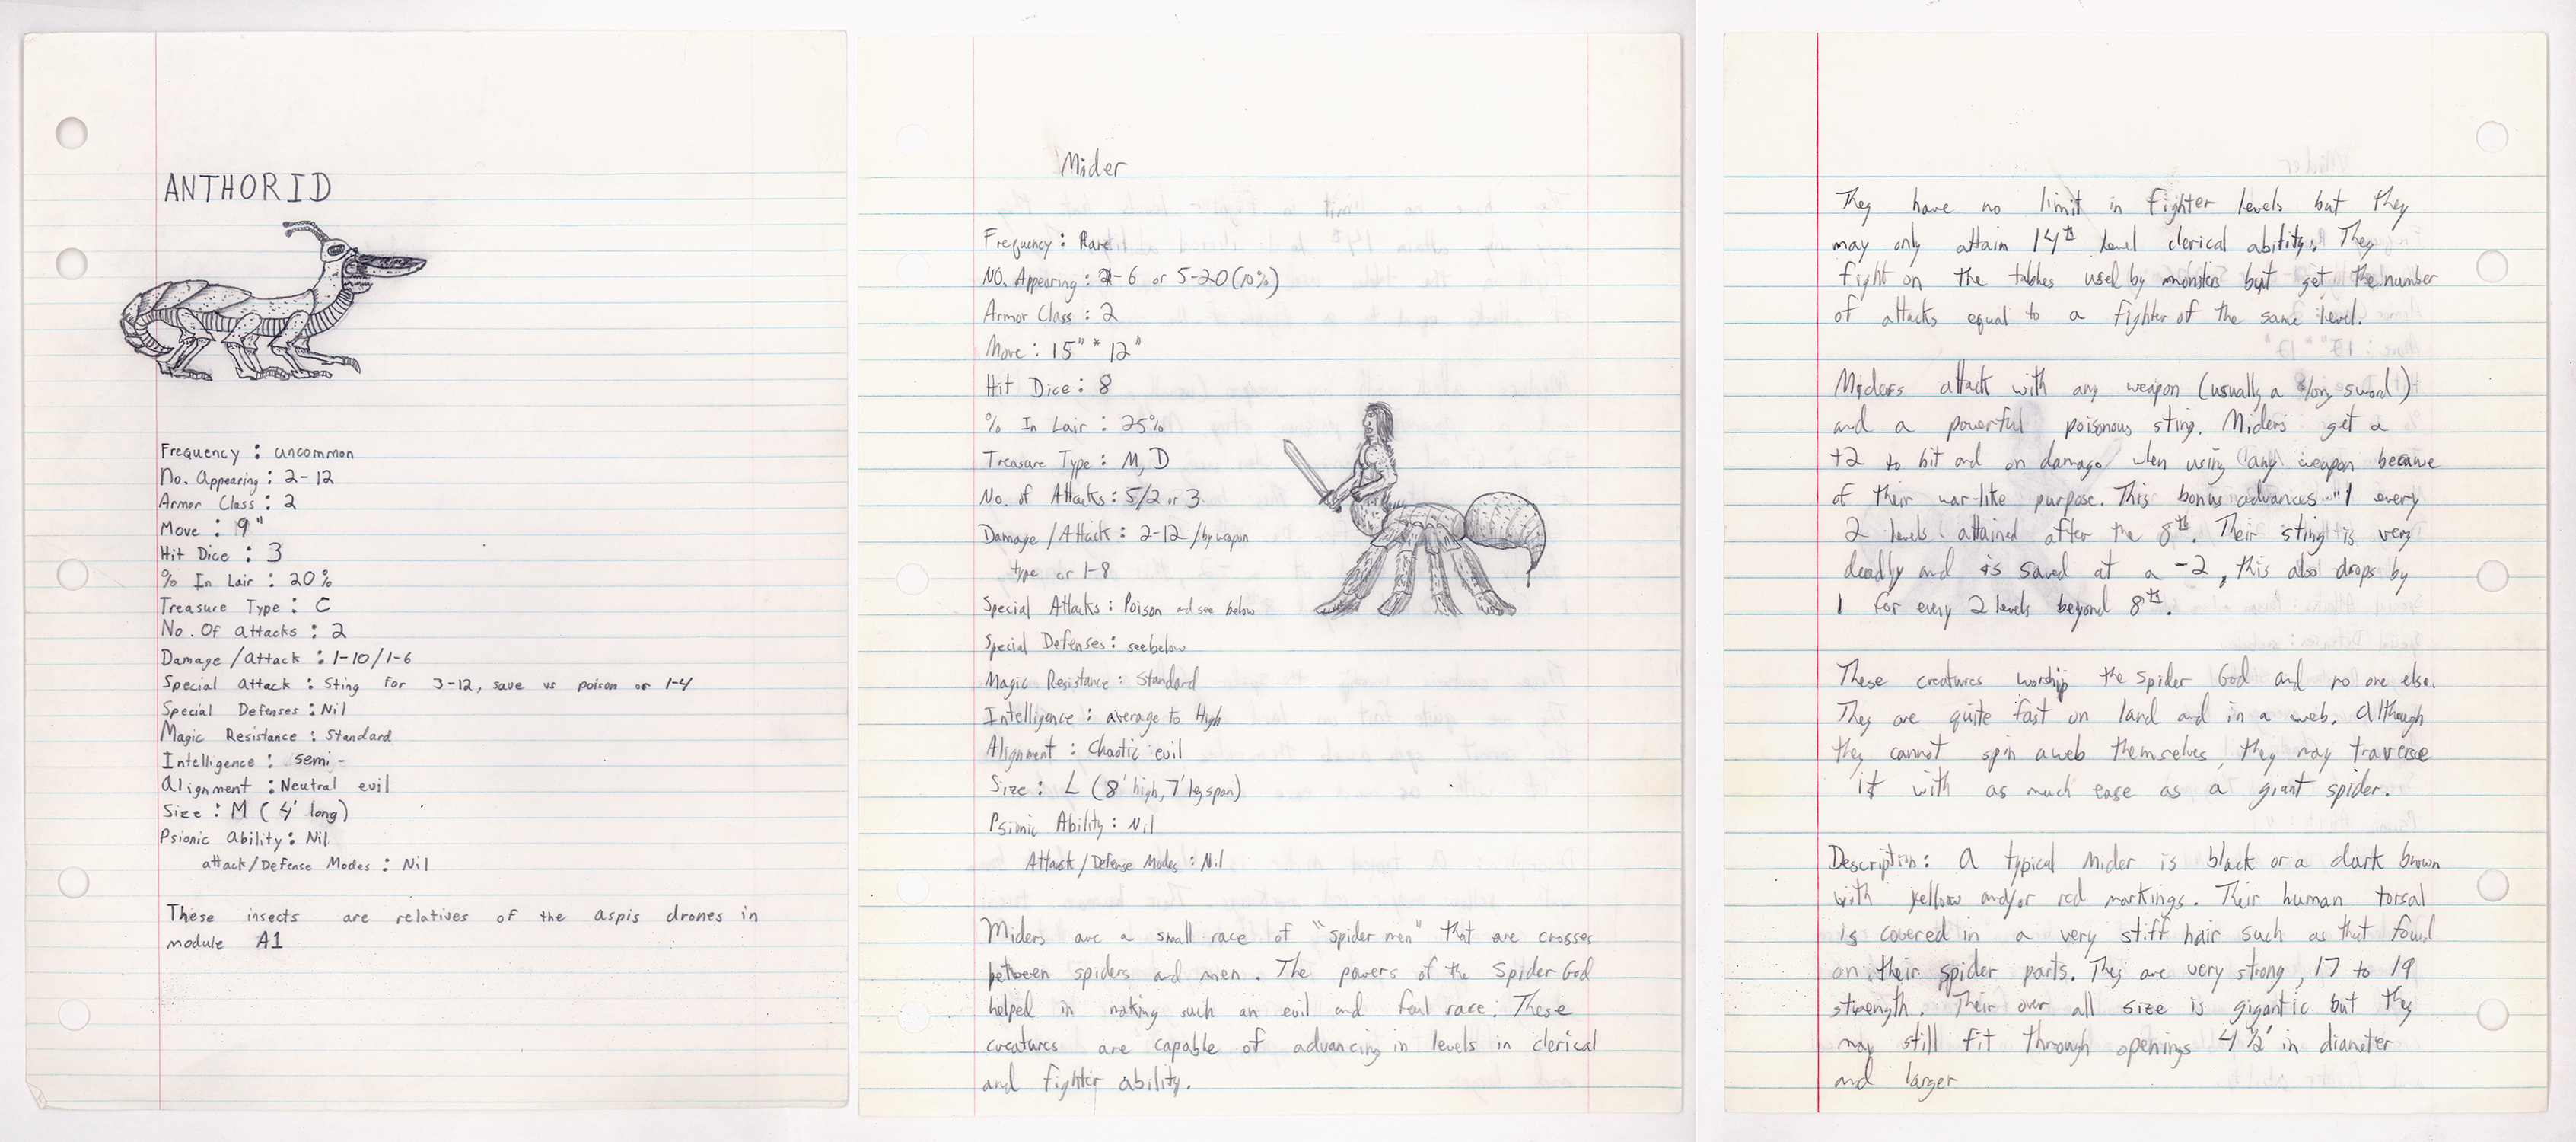 ANTHORID
Frequency : uncommon
No. Appearing : 2-12
Armor Class : 2
Move : 9"
Hit Dice : 3
% In Lair : 20%
Treasure Type : C
No. Of attacks : 2
Damage/attack : 1-10/1-6
Special attack : Sting for 3-12, save vs poison or 1-4
Special Defenses : Nil
Magic Resistance : Standard
Intelligence : semi-
Alignment : Neutral evil
Size : M (4' long)
Psionic Ability : Nil
attack/Defense Modes : Nil
These insects are relatives of the aspis drones in
module A1
Mider
Frequency : Rare
NO. Appearing : -6 or 5-20 (10%)
Armor Class : 2
Move : 15" * 12"
Hit Dice : 8
% In Lair : 25%
Treasure Type : M, D
No. of Attacks : 5/2 or 3
Damage/Attack : 2-12/by weapon
type or 1-8
Special Attacks : Poison and see below
Special Defenses : see below
Magic Resistance : Standard
Intelligence : average to High
Alignment : Chaotic evil
Size : L (8' high, 7' leg span)
Psionic Ability : Nil
Attack/Defense Modes : Nil
Miders are a small race of "spider men" that are crosses
between spiders and men. The powers of the Spider God
helped in making such an evil and foul race. These
creatures are capable of advancing in levels in clerical
and fighter ability.
They have no limit in fighter levels but they
may only attain 14th level clerical ability. They
fight on the tables used by monsters but get the number
of attacks equal to a fighter of the same level.
Miders attack with any weapon (usually a long sword)
and a powerful poisonous sting. Miders get a
+2 to hit and on damage when using any weapon because
of their war-like purpose. This bonus advances 1 every
2 levels attained after the 8th. Their sting is very
deadly and is saved at a -2, this also drops by
1 for every 2 levels beyond 8th.
These creatures worship the spider God and no one else.
They are quite fast on land and in a web. Although
they cannot spin a web themselves, they may traverse
it with as much ease as a giant spider.
Description: A typical Mider is black or a dark brown
with yellow and/or red markings. Their human torsal
is covered in a very stiff hair such as that found
on their spider parts. They are very strong, 17 to 19
strength. Their over all size is gigantic but they
may still fit through openings 4½' in diameter
and larger